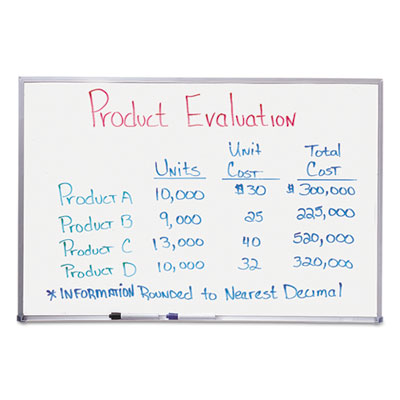 Product Evaluation
Units Unit Cost Total Cost
Product A 10,000 $30 $ 300,000
Product B 9,000 25 225,000
Product C 13,000 40 520,000
Product D 10,000 32 320,000
* INFORMATION Rounded to Nearest Decimal